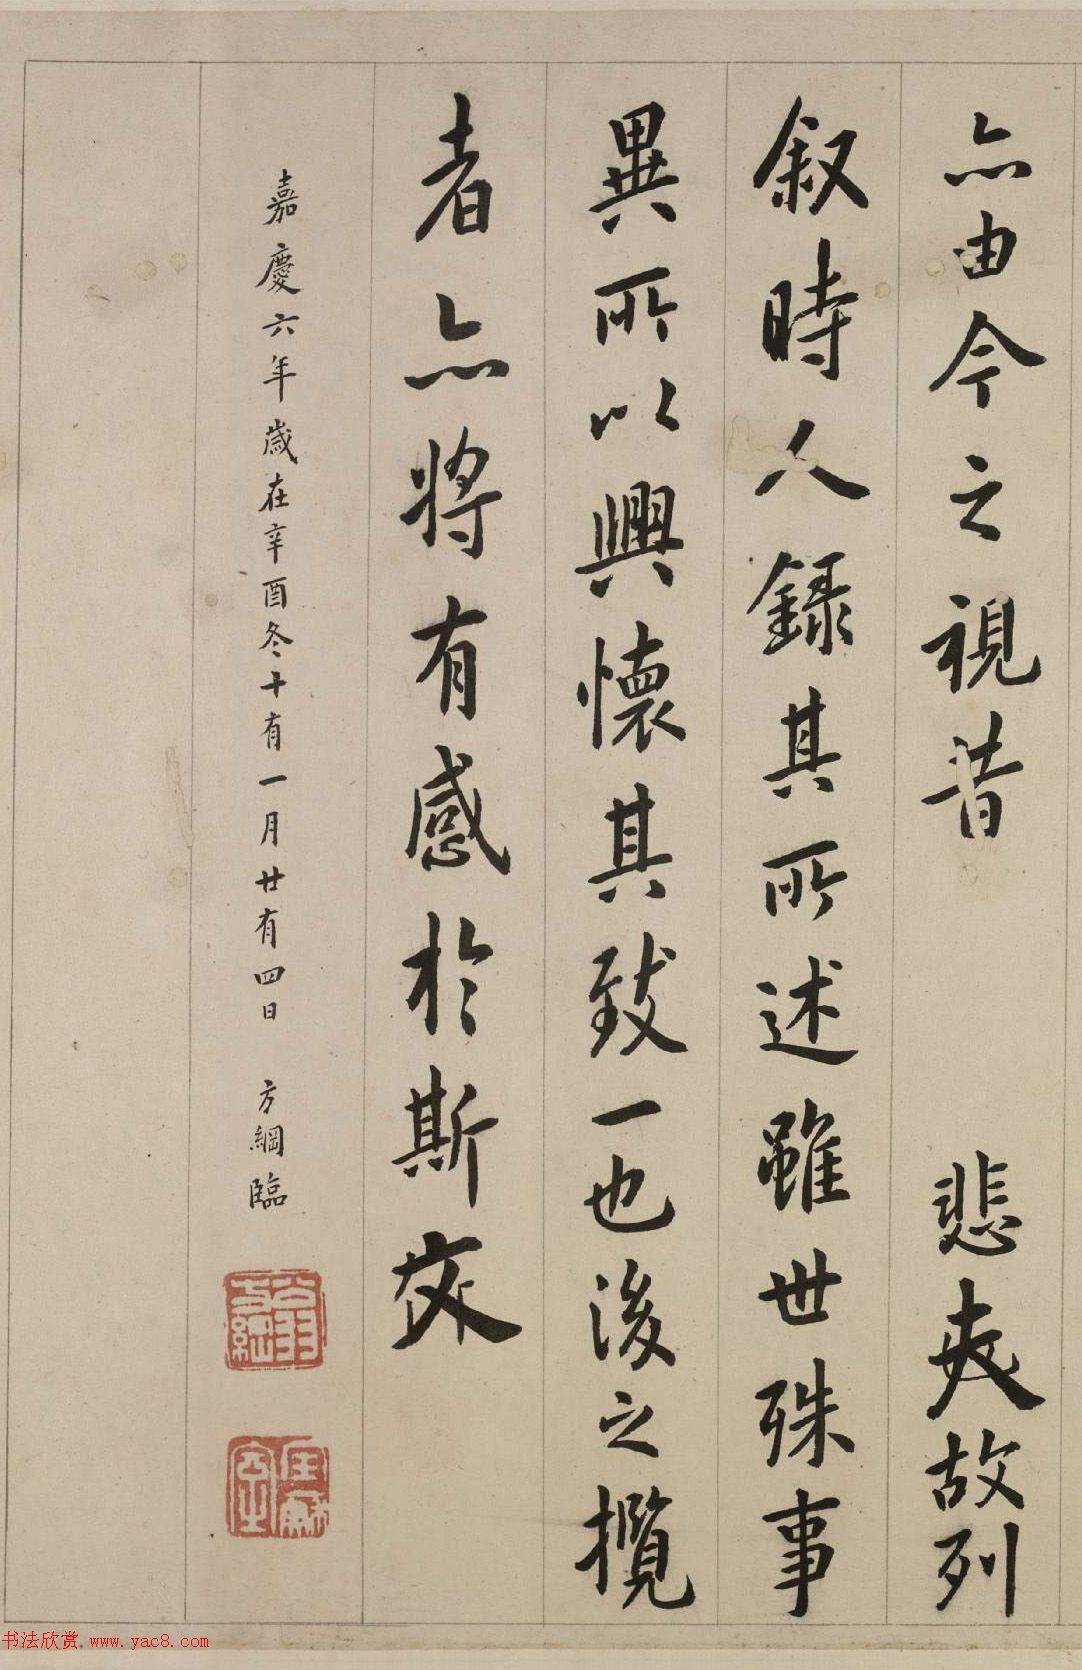 亦由今之視昔 悲夫故列
叙時人錄其所述雖世殊事
異所以興懷其致一也後之攬
者亦將有感於斯文
嘉慶六年歲在辛酉冬十有一月廿有四日 方綱臨
翁方綱
書法欣赏 www.yac8.com